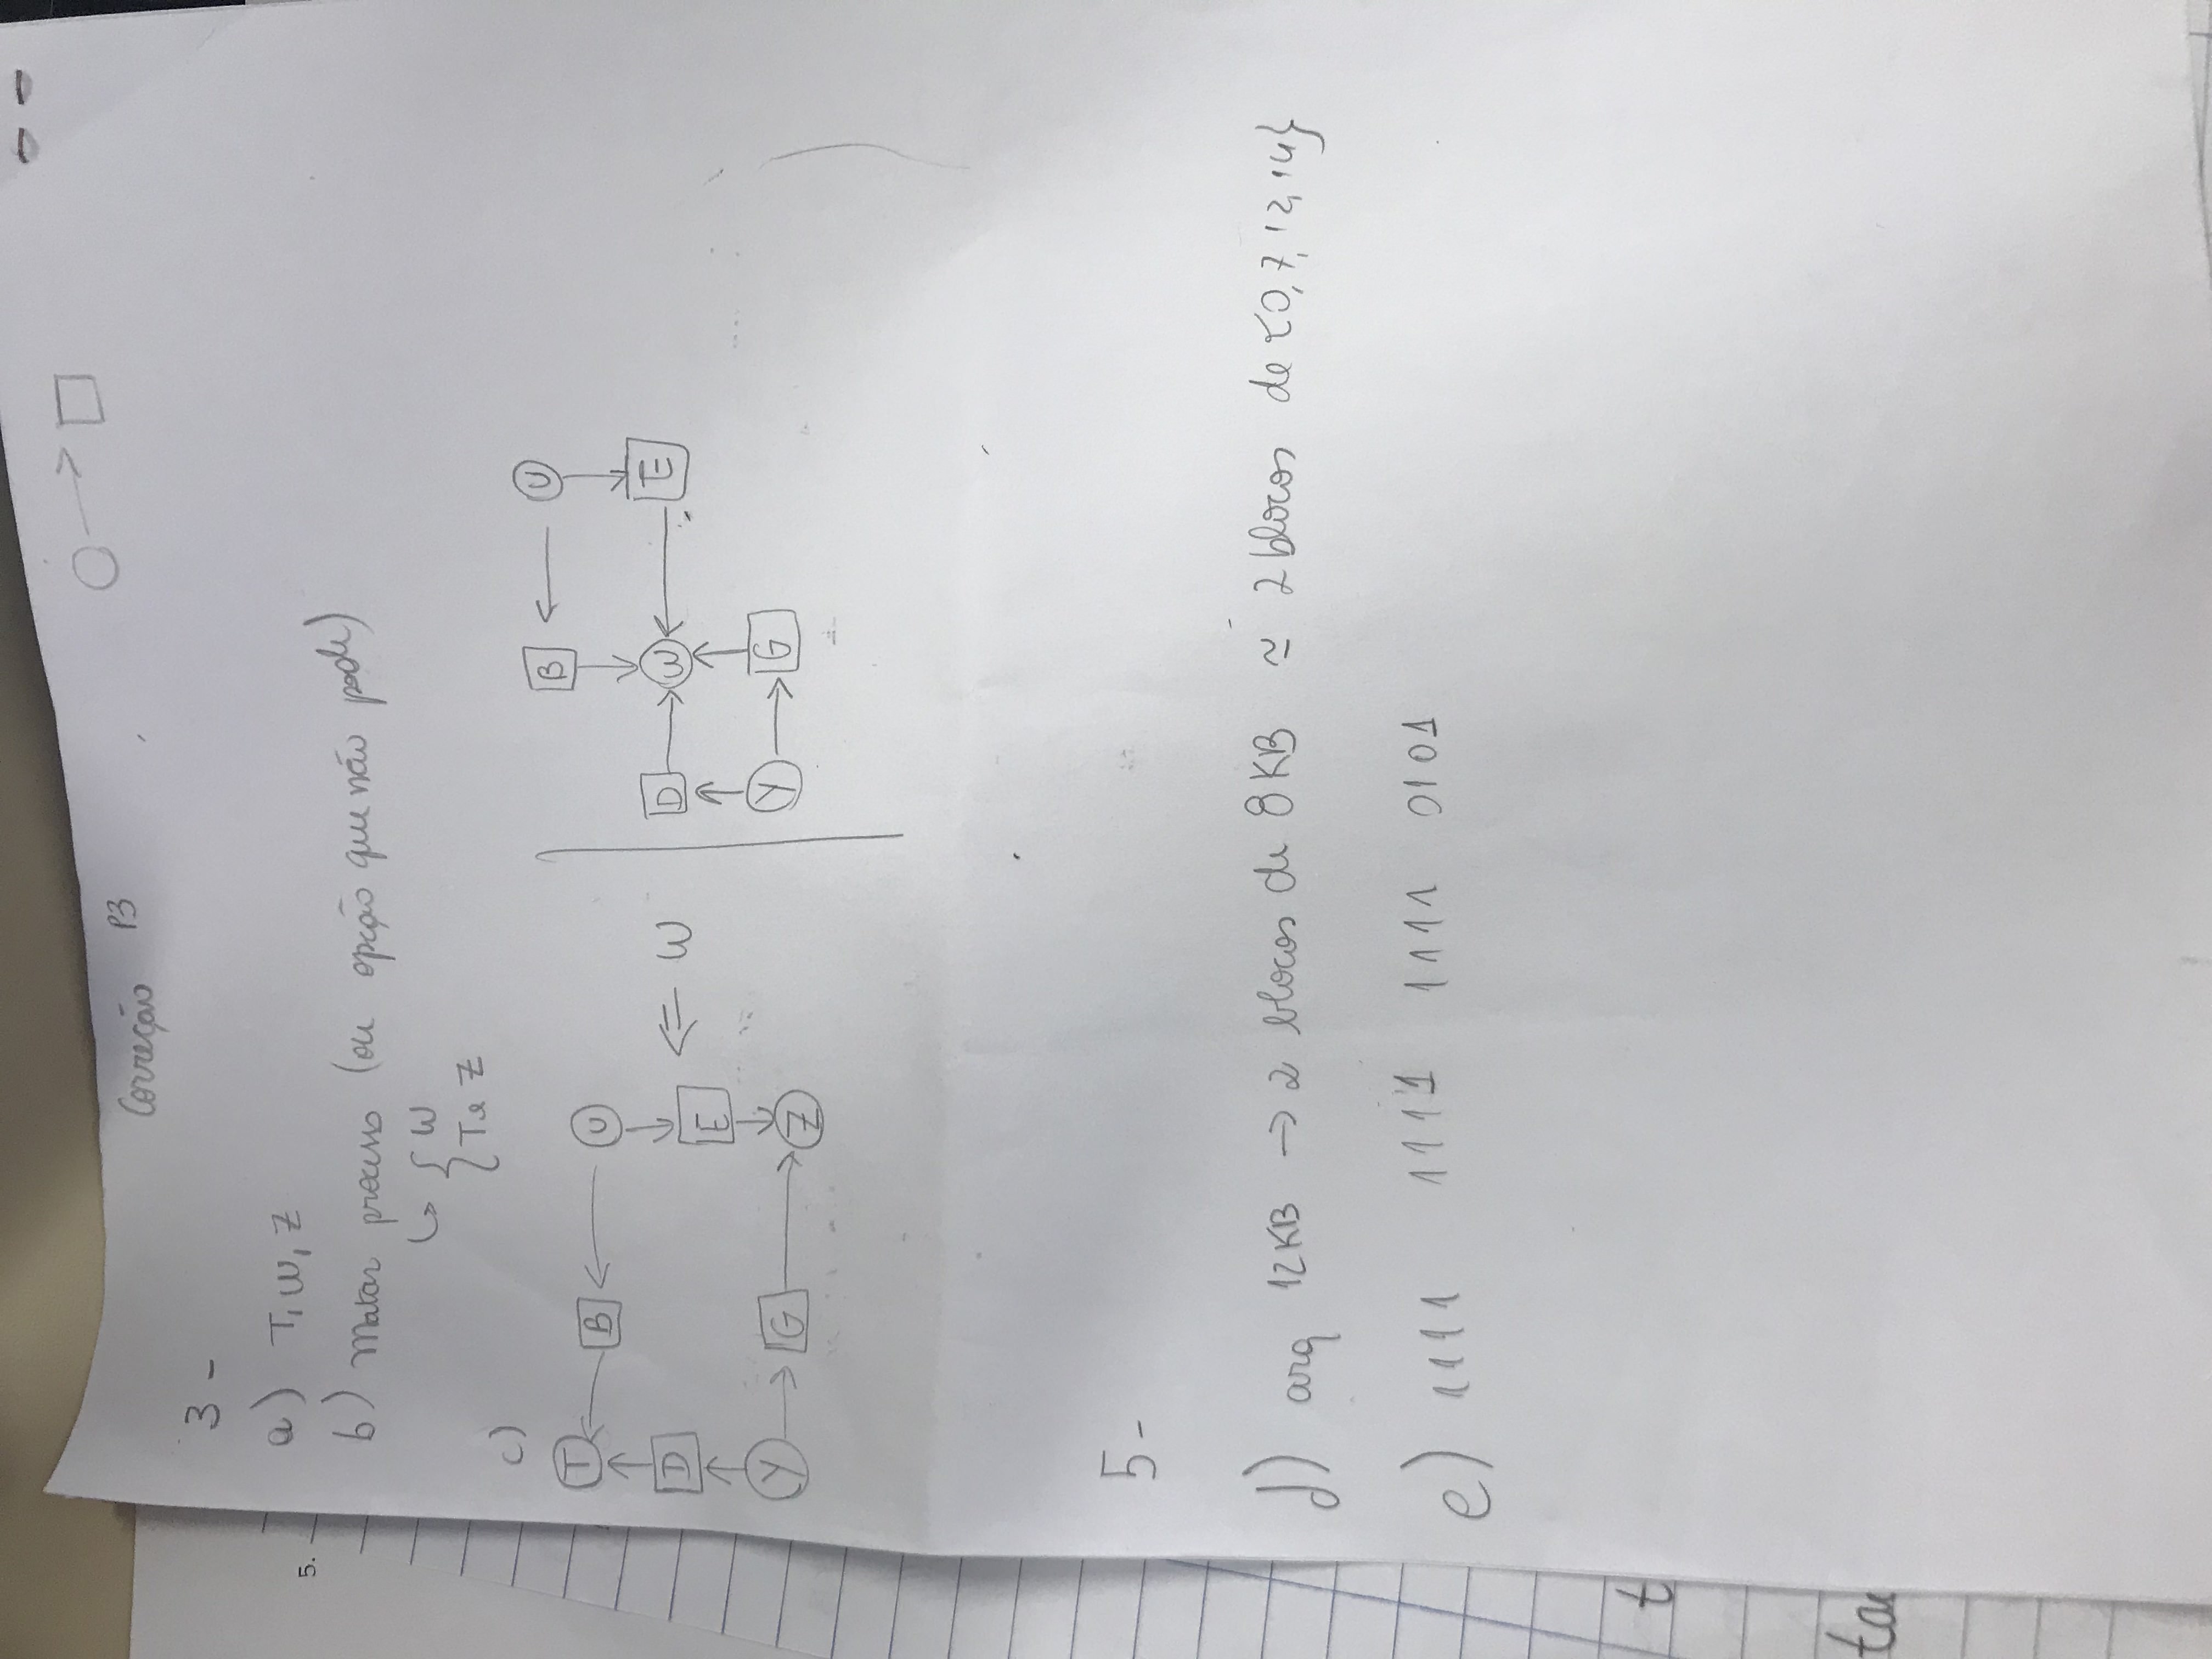 Correção P3
3 -
a) T, W, Z
5.
b) Matar processo (ou opção que não pode)
↳ { W
{ T e Z
c)
T ← B ← U
D E ⇐ W
Y → G → Z
B ← U
D → W ← E
Y → G
5-
d) arq 12KB → 2 blocos de 8KB ≃ 2 blocos de {0, 7, 12, 14}
e) 1111 1111 1111 0101
t